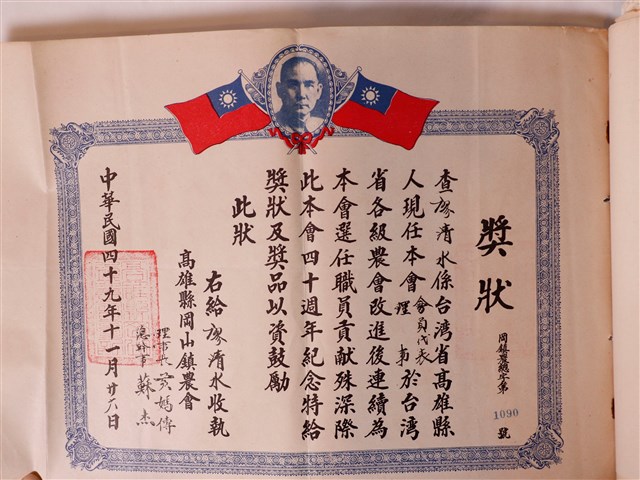 獎狀
岡鎮農總字第1090號
查廖清水係台湾省高雄縣
人現任本會會員代表理事於台湾
省各級農會改進後連續為
本會選任職員貢献殊深際
此本會四十週年紀念特給
獎狀及獎品以資鼓勵
此狀
右給廖清水收執
高雄縣岡山鎮農會
理事長
總幹事蘇杰
中華民國四十九年十一月廿八日